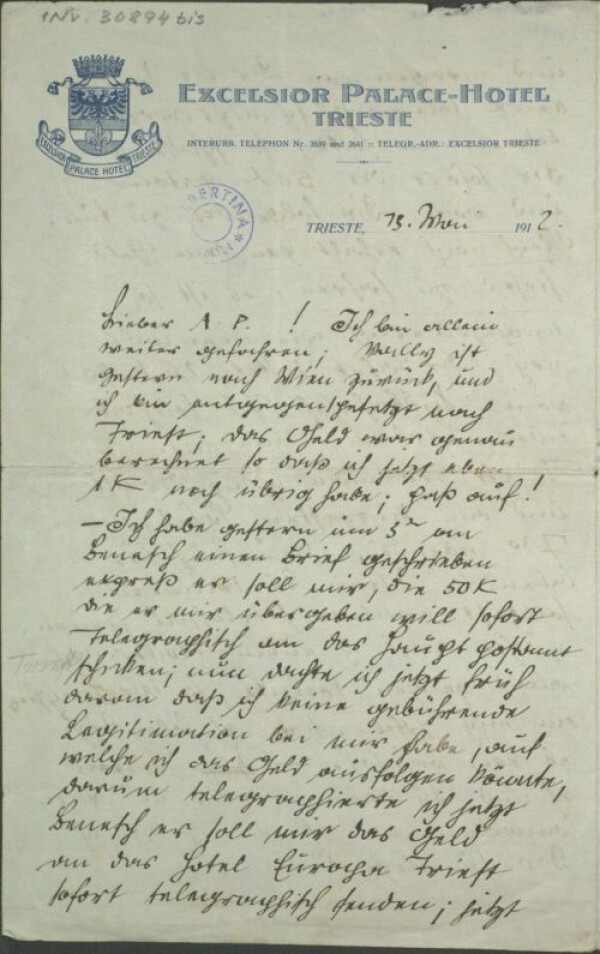 INV. 30894 bis
EXCELSIOR PALACE HOTEL TRIESTE
EXCELSIOR PALACE-HOTEL
TRIESTE
INTERURB. TELEPHON Nr. 2639 und 2641 :: TELEGR.-ADR.: EXCELSIOR TRIESTE
ALBERTINA
TRIESTE, 13. Mai 1912.
Lieber A. P. ! Ich bin allein
weiter gefahren; Wally ist
gestern nach Wien zurück, und
ich bin entgegengesetzt nach
Triest; das Geld war genau
berechnet so daß ich jetzt eben
1 K noch übrig habe; paß auf!
– Ich habe gestern um 5 an
Benesch einen Brief geschrieben
expreß er soll mir, die 50 K
die er mir übergeben will sofort
telegraphisch an das Hauptpostamt
schicken; nun dachte ich jetzt früh
daran daß ich keine gebührende
Legitimation bei mir habe, auf
welche ich das Geld ausfolgen könnte,
darum telegraphierte ich jetzt
Benesch er soll mir das Geld
an das Hotel Europa Triest
sofort telegraphisch senden; jetzt